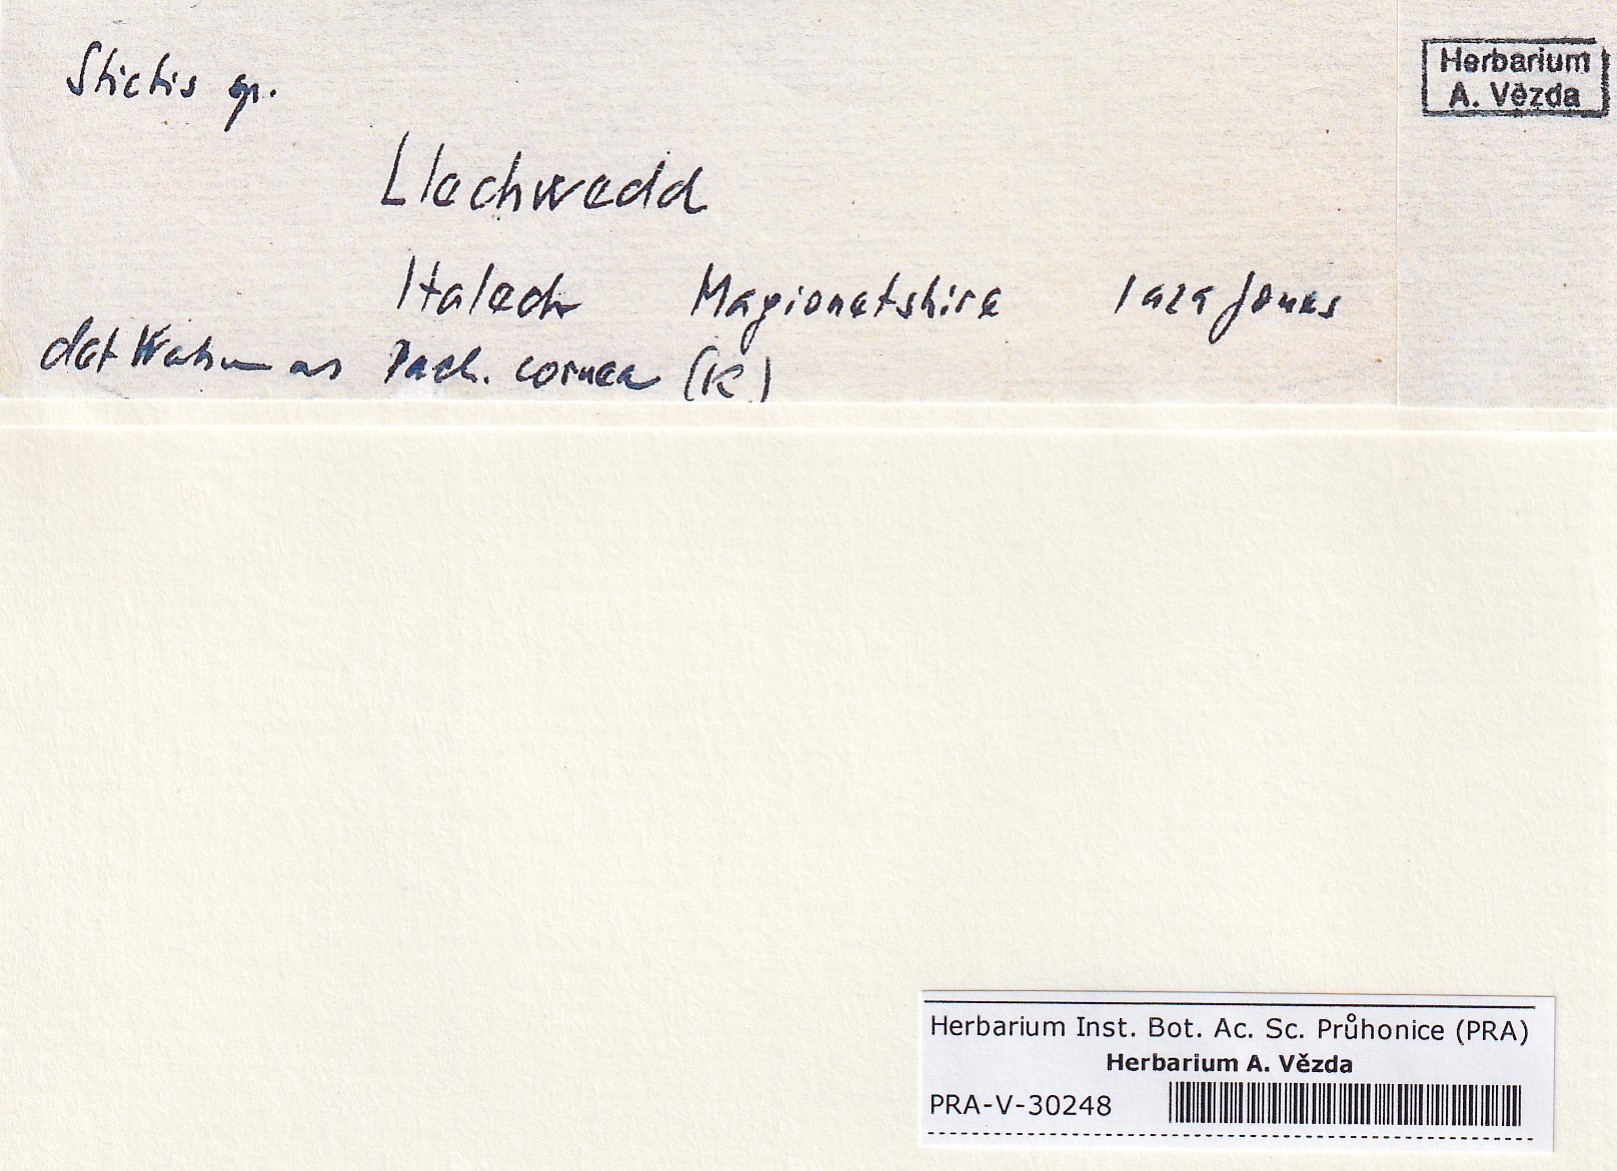 Stictis sp.
Herbarium
A. Vězda
Llechwedd
Italech Magionetshire Jones
det as Pach. cornea (K)
Herbarium Inst. Bot. Ac. Sc. Průhonice (PRA)
Herbarium A. Vězda
PRA-V-30248